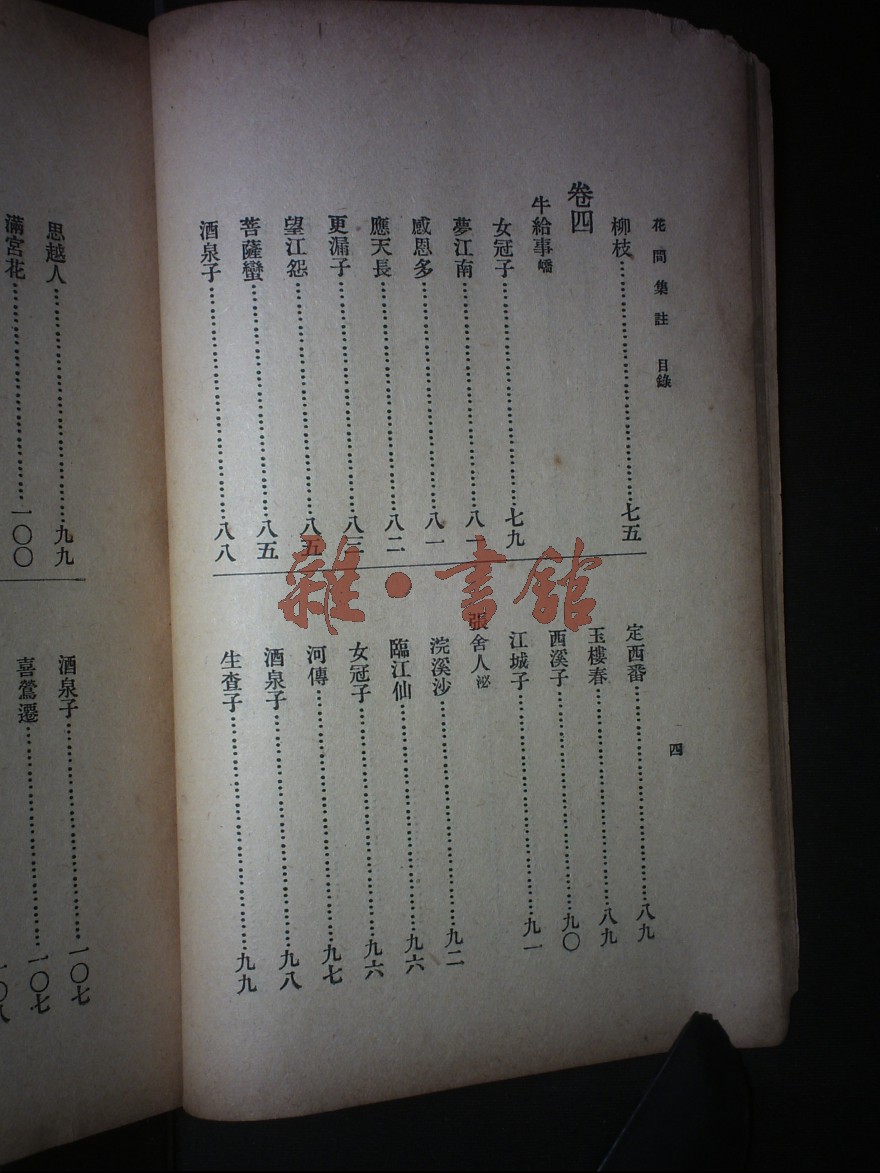 花間集註 目錄
四
柳枝……七五
卷四
牛給事嶠
女冠子……七九
夢江南……八一
感恩多……八一
應天長……八二
更漏子……八三
望江怨……八五
菩薩蠻……八五
酒泉子……八八
定西番……八九
玉樓春……八九
西溪子……九〇
江城子……九一
張舍人泌
浣溪沙……九二
臨江仙……九六
女冠子……九六
河傳……九七
酒泉子……九八
生查子……九九
思越人……九九
滿宮花……一〇〇
酒泉子……一〇七
喜鶯遷……一〇七
一〇八
雜·書館